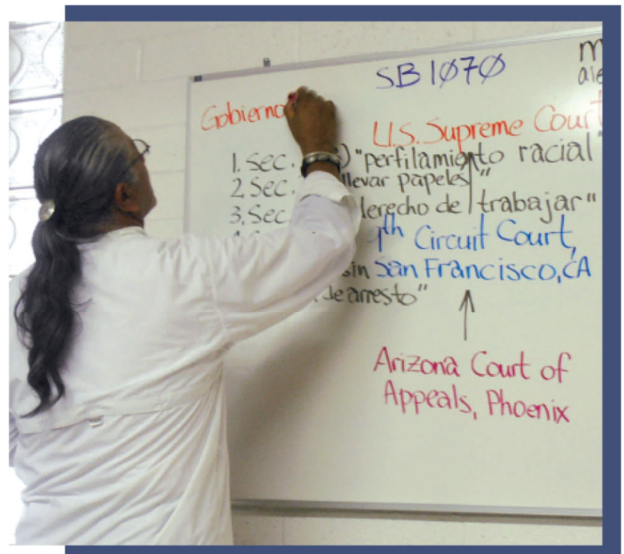 SB 1070
Gobierno
U.S. Supreme Court
1. Sec. "perfilamiento racial"
2. Sec. llevar papeles"
3. Sec. derecho de trabajar"
th Circuit Court,
sin San Francisco, CA
de arresto"
Arizona Court of
Appeals, Phoenix